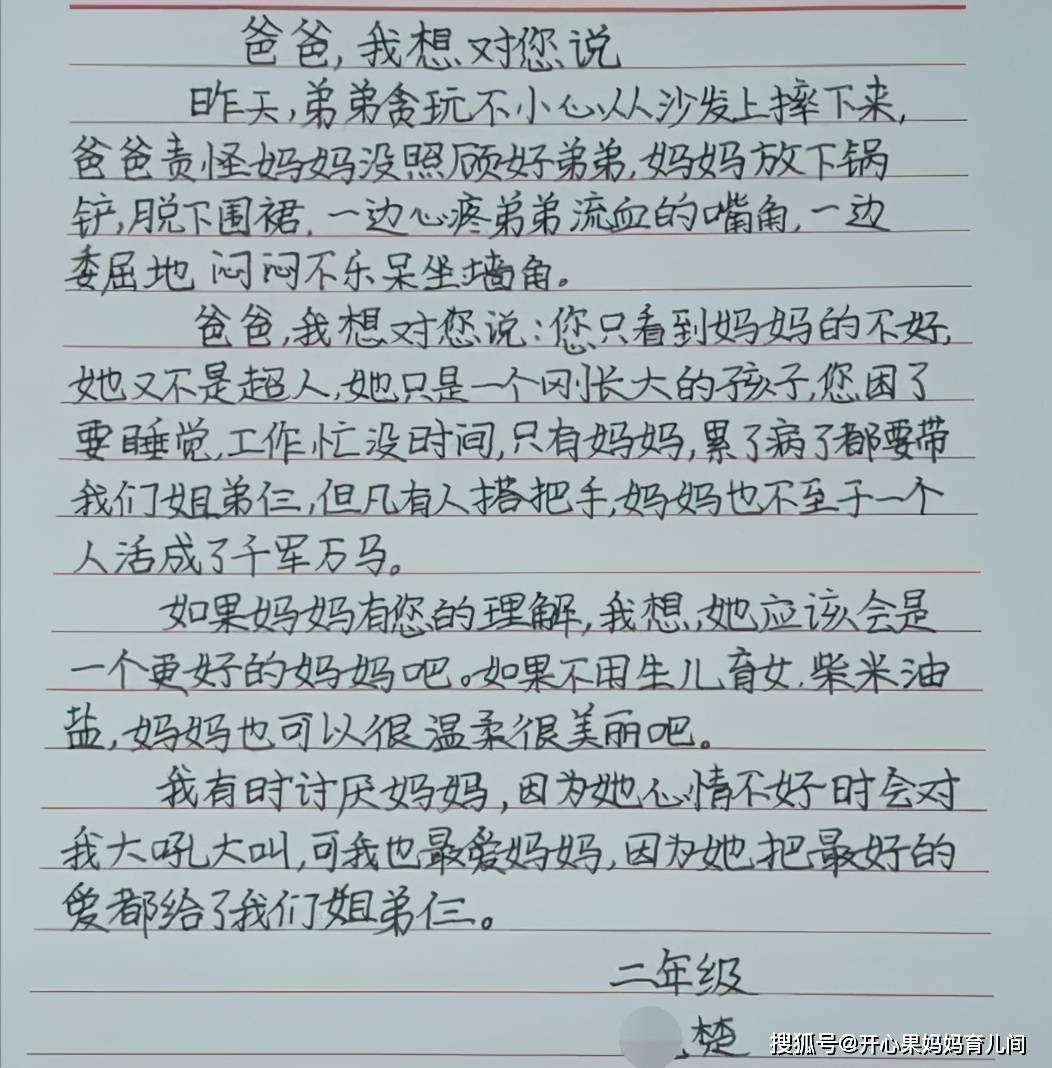 爸爸,我想对您说
昨天,弟弟贪玩不小心从沙发上摔下来,
爸爸责怪妈妈没照顾好弟弟,妈妈放下锅
铲,脱下围裙,一边心疼弟弟流血的嘴角,一边
委屈地闷闷不乐呆坐墙角。
爸爸,我想对您说:您只看到妈妈的不好,
她又不是超人,她只是一个刚长大的孩子,您困了
要睡觉,工作忙没时间,只有妈妈,累了病了都要带
我们姐弟仨,但凡有人搭把手,妈妈也不至于一个
人活成了千军万马。
如果妈妈有您的理解,我想,她应该会是
一个更好的妈妈吧。如果不用生儿育女,柴米油
盐,妈妈也可以很温柔很美丽吧。
我有时讨厌妈妈,因为她心情不好时会对
我大吼大叫,可我也最爱妈妈,因为她把最好的
爱都给了我们姐弟仨。
二年级
楚
搜狐号@开心果妈妈育儿间